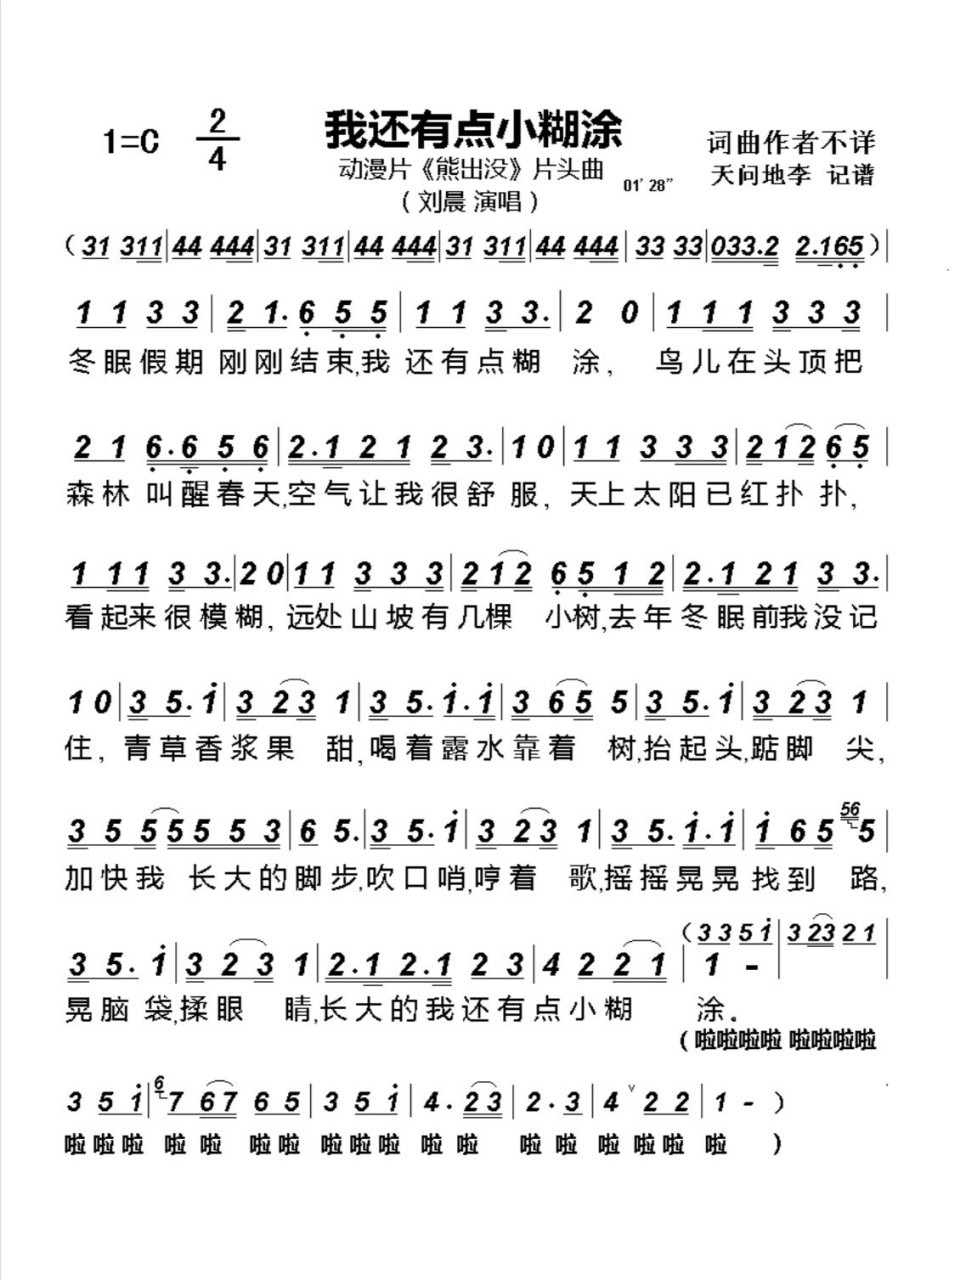 1=C 2/4 我还有点小糊涂 词曲作者不详
动漫片《熊出没》片头曲 01′28″ 天问地李 记谱
（刘晨 演唱）
（31 311|44 444|31 311|44 444|31 311|44 444|33 33|033.2 2.165）|
1 1 3 3|2 1. 6 5 5|1 1 3 3.|2 0|1 1 1 3 3 3|
冬眠假期 刚刚结束,我 还有点糊 涂， 鸟儿在头顶把
2 1 6.6 5 6|2.1 2 1 2 3.|1 0|1 1 3 3 3|2 1 2 6 5|
森林 叫醒春天,空气让我很舒服，天上太阳已红扑扑，
1 1 1 3 3.|2 0|1 1 3 3 3|2 1 2 6 5 1 2|2.1 2 1 3 3.|
看起来很模糊，远处山坡有几棵 小树,去年冬眠前我没记
1 0|3 5.1|3 2 3 1|3 5.1.1|3 6 5 5|3 5.1|3 2 3 1|
住，青草香浆果 甜,喝着露水靠着 树,抬起头,踮脚 尖，
3 5 5 5 5 5 3|6 5.|3 5.1|3 2 3 1|3 5.1.1|1 6 5 56 5|
加快我 长大的脚步,吹口哨,哼着 歌,摇摇晃晃找到 路，
（3 3 5 1|3 23 2 1|
3 5.1|3 2 3 1|2.1 2.1 2 3|4 2 2 1|1 -|
晃脑 袋,揉眼 睛,长大的我还有点小糊 涂。
（啦啦啦啦 啦啦啦啦
3 5 1|6 7 6 7 6 5|3 5 1|4. 2 3|2. 3|4 ∨ 2 2|1 - ）
啦啦啦 啦 啦 啦啦 啦啦啦 啦 啦 啦 啦 啦啦啦 啦 ）